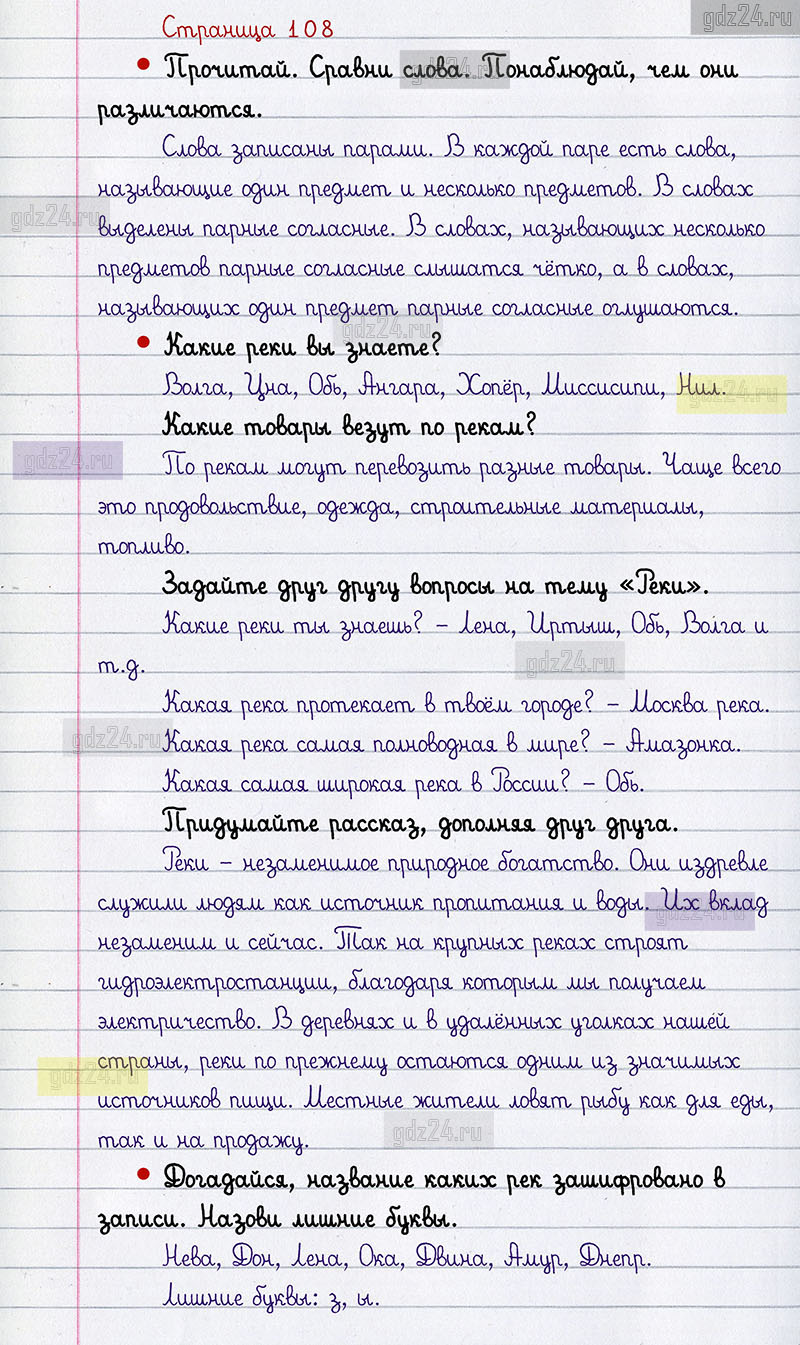 gdz24.ru
Страница 108
• Прочитай. Сравни слова. Понаблюдай, чем они
различаются.
Слова записаны парами. В каждой паре есть слова,
называющие один предмет и несколько предметов. В словах
выделены парные согласные. В словах, называющих несколько
предметов парные согласные слышатся чётко, а в словах,
называющих один предмет парные согласные оглушаются.
• Какие реки вы знаете?
Волга, Цна, Обь, Ангара, Хопёр, Миссисипи, Нил.
Какие товары везут по рекам?
По рекам могут перевозить разные товары. Чаще всего
это продовольствие, одежда, строительные материалы,
топливо.
Задайте друг другу вопросы на тему «Реки».
Какие реки ты знаешь? – Лена, Иртыш, Обь, Волга и
т.д.
Какая река протекает в твоём городе? – Москва река.
Какая река самая полноводная в мире? – Амазонка.
Какая самая широкая река в России? – Обь.
Придумайте рассказ, дополняя друг друга.
Реки – незаменимое природное богатство. Они издревле
служили людям как источник пропитания и воды. Их вклад
незаменим и сейчас. Так на крупных реках строят
гидроэлектростанции, благодаря которым мы получаем
электричество. В деревнях и в удалённых уголках нашей
страны, реки по прежнему остаются одним из значимых
источников пищи. Местные жители ловят рыбу как для еды,
так и на продажу.
• Догадайся, название каких рек зашифровано в
записи. Назови лишние буквы.
Нева, Дон, Лена, Ока, Двина, Амур, Днепр.
Лишние буквы: з, ы.
gdz24.ru
gdz24.ru
gdz24.ru
gdz24.ru
gdz24.ru
gdz24.ru
gdz24.ru
gdz24.ru
gdz24.ru
gdz24.ru